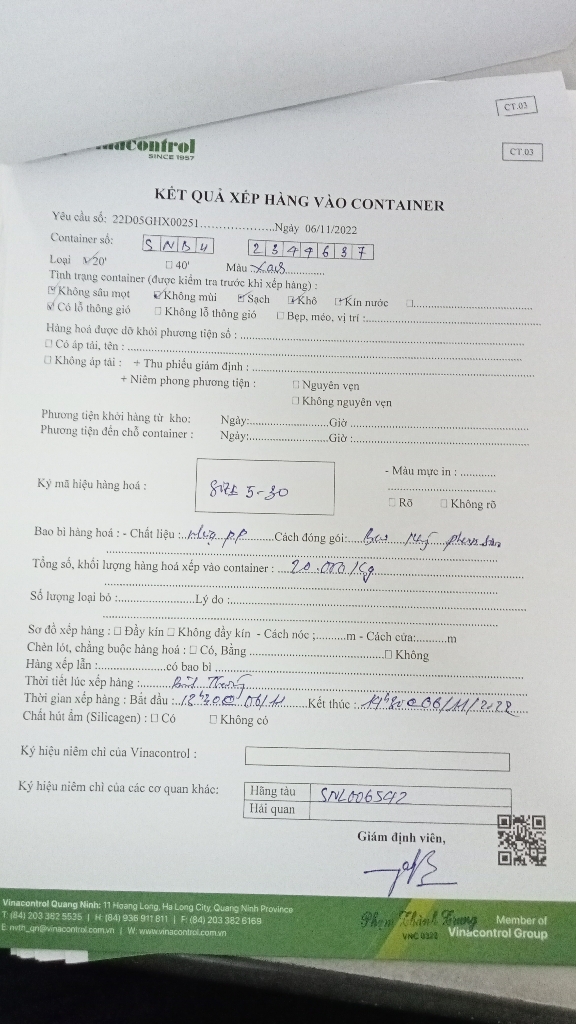 CT.03
CT.03
nacontrol
SINCE 1957
KẾT QUẢ XẾP HÀNG VÀO CONTAINER
Yêu cầu số: 22D05GHX00251......................Ngày 06/11/2022
Container số: S N B U 2 3 4 4 6 3 7
Loại ☑20' ☐ 40' Màu :xanh................
Tình trạng container (được kiểm tra trước khi xếp hàng) :
☑Không sâu mọt ☑Không mùi ☑Sạch ☑Khô ☑Kín nước ☐..............................
☑ Có lỗ thông gió ☐ Không lỗ thông gió ☐ Bẹp, méo, vị trí :..............................
Hàng hoá được dỡ khỏi phương tiện số : ..............................
☐ Có áp tải, tên : ..............................
☐ Không áp tải : + Thu phiếu giám định : ..............................
+ Niêm phong phương tiện : ☐ Nguyên vẹn
☐ Không nguyên vẹn
Phương tiện khởi hàng từ kho: Ngày:......................Giờ ..............................
Phương tiện đến chỗ container : Ngày:......................Giờ :..............................
Ký mã hiệu hàng hoá : SIZE 5-30
- Màu mực in : ............
....................
☐ Rõ ☐ Không rõ
Bao bì hàng hoá : - Chất liệu : nhựa PP.........Cách đóng gói:....Bao
Tổng số, khối lượng hàng hoá xếp vào container : 20.000/Kg
Số lượng loại bỏ :......................Lý do :..............................
Sơ đồ xếp hàng : ☐ Đầy kín ☐ Không đầy kín - Cách nóc ;.........m - Cách cửa:.........m
Chèn lót, chằng buộc hàng hoá : ☐ Có, Bằng ..............................☐ Không
Hàng xếp lẫn :....................có bao bì ..............................
Thời tiết lúc xếp hàng :
Thời gian xếp hàng : Bắt đầu : 06/11 Kết thúc : 06/11/2022
Chất hút ẩm (Silicagen) : ☐ Có ☐ Không có
Ký hiệu niêm chì của Vinacontrol :
Ký hiệu niêm chì của các cơ quan khác: Hãng tàu SNL006542
Hải quan
Giám định viên,
Vinacontrol Quang Ninh: 11 Hoang Long, Ha Long City, Quang Ninh Province
T: (84) 203 382 5535 | H: (84) 936 911 811 | F: (84) 203 382 6169
E: nvth_qn@vinacontrol.com.vn | W: www.vinacontrol.com.vn
Phạm Thành Trung
VNC 0328
Member of
Vinacontrol Group